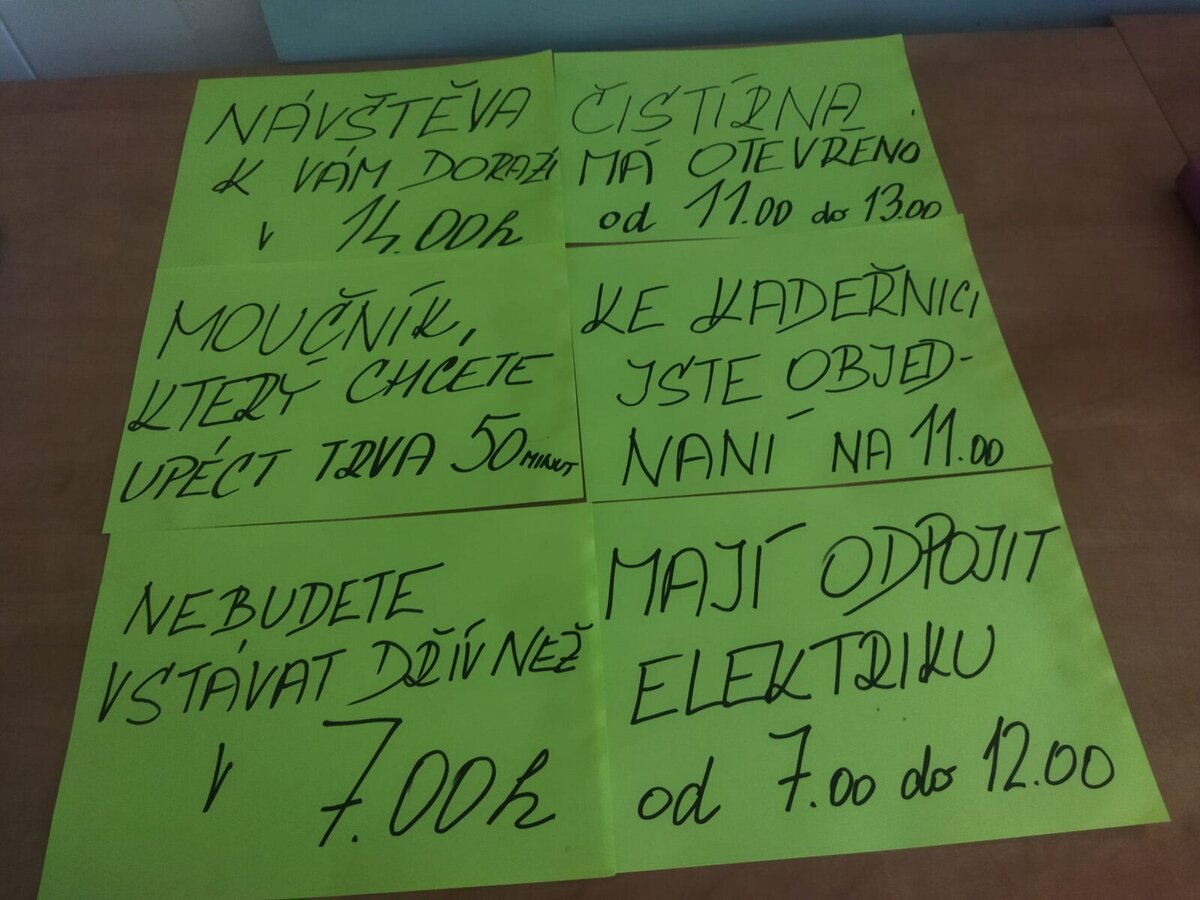 NÁVŠTĚVA
K VÁM DORAZÍ
v 14.00h
ČISTÍRNA
MÁ OTEVŘENO
od 11.00 do 13.00
MOUČNÍK,
KTERÝ CHCETE
UPÉCT TRVA 50 MINUT
KE KADEŘNICI
JSTE OBJED-
NANÍ NA 11.00
NEBUDETE
VSTÁVAT DŘÍV NEŽ
V 7.00h
MAJÍ ODPOJIT
ELEKTRIKU
od 7.00 do 12.00